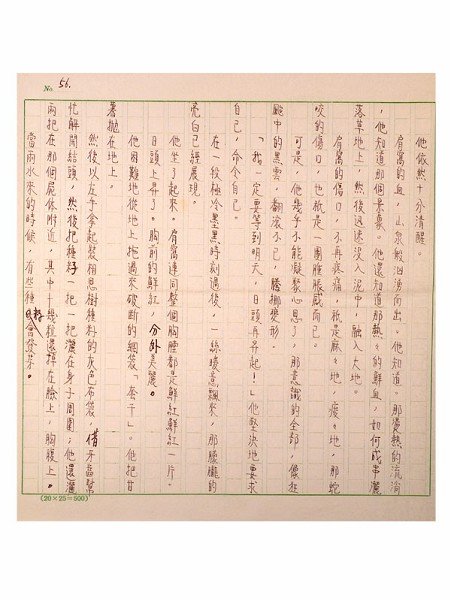 No. 56.
他依然十分清醒。
肩窩的血，山泉般汩湧而出。他知道。那燙熱的流淌
，他知道那個景象。他還知道那熱々的鮮血，如何成串灑
落草地上，然後迅速沒入泥中，融入大地。
肩窩的傷口，不再疼痛，祇是麻々地，癢々地，那蛇
咬的傷口，也祇是一團腫脹感而已。
可是，他幾乎不能凝聚心思了，那意識的全部，像狂
飈中的黑雲，翻滾不已，騰挪變形。
「我一定要等到明天，日頭再昇起！」他堅決地要求
自己，命令自己。
在一段極冷墨黑時刻過後，一絲暖意飄來，那朦朧的
亮白已經展現。
他坐了起來。肩窩連同整個胸膛都是鮮紅鮮紅一片。
日頭上昇了。胸前的鮮紅，分外美麗。
他困難地從地上拖過來破斷的細袋、柰千」。他把甘
薯拋在地上。
然後以左手拿起裝相思樹種料的灰色布袋，借牙齒幫
忙解開結頭，然後把種籽一把一把灑在身子周圍；他還灑
兩把在那個屍体附近，其中十幾粒還掉在臉上，胸腹上。
當雨水來的時候，有些種籽會發芽。
(20×25=500)